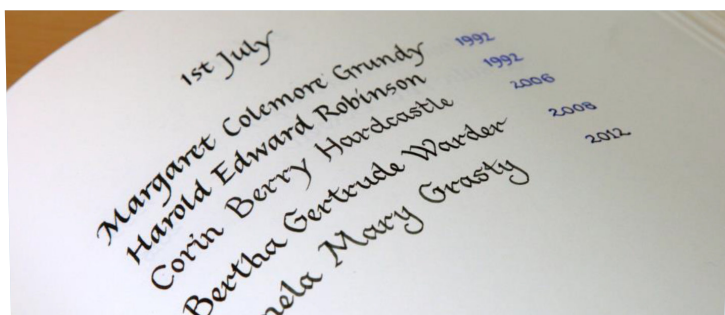 1st July
Margaret Colemore Grundy 1992
Harold Edward Robinson 1992
Corin Berry Hardcastle 2006
Bertha Gertrude Warder 2008
Mary Grasty 2012